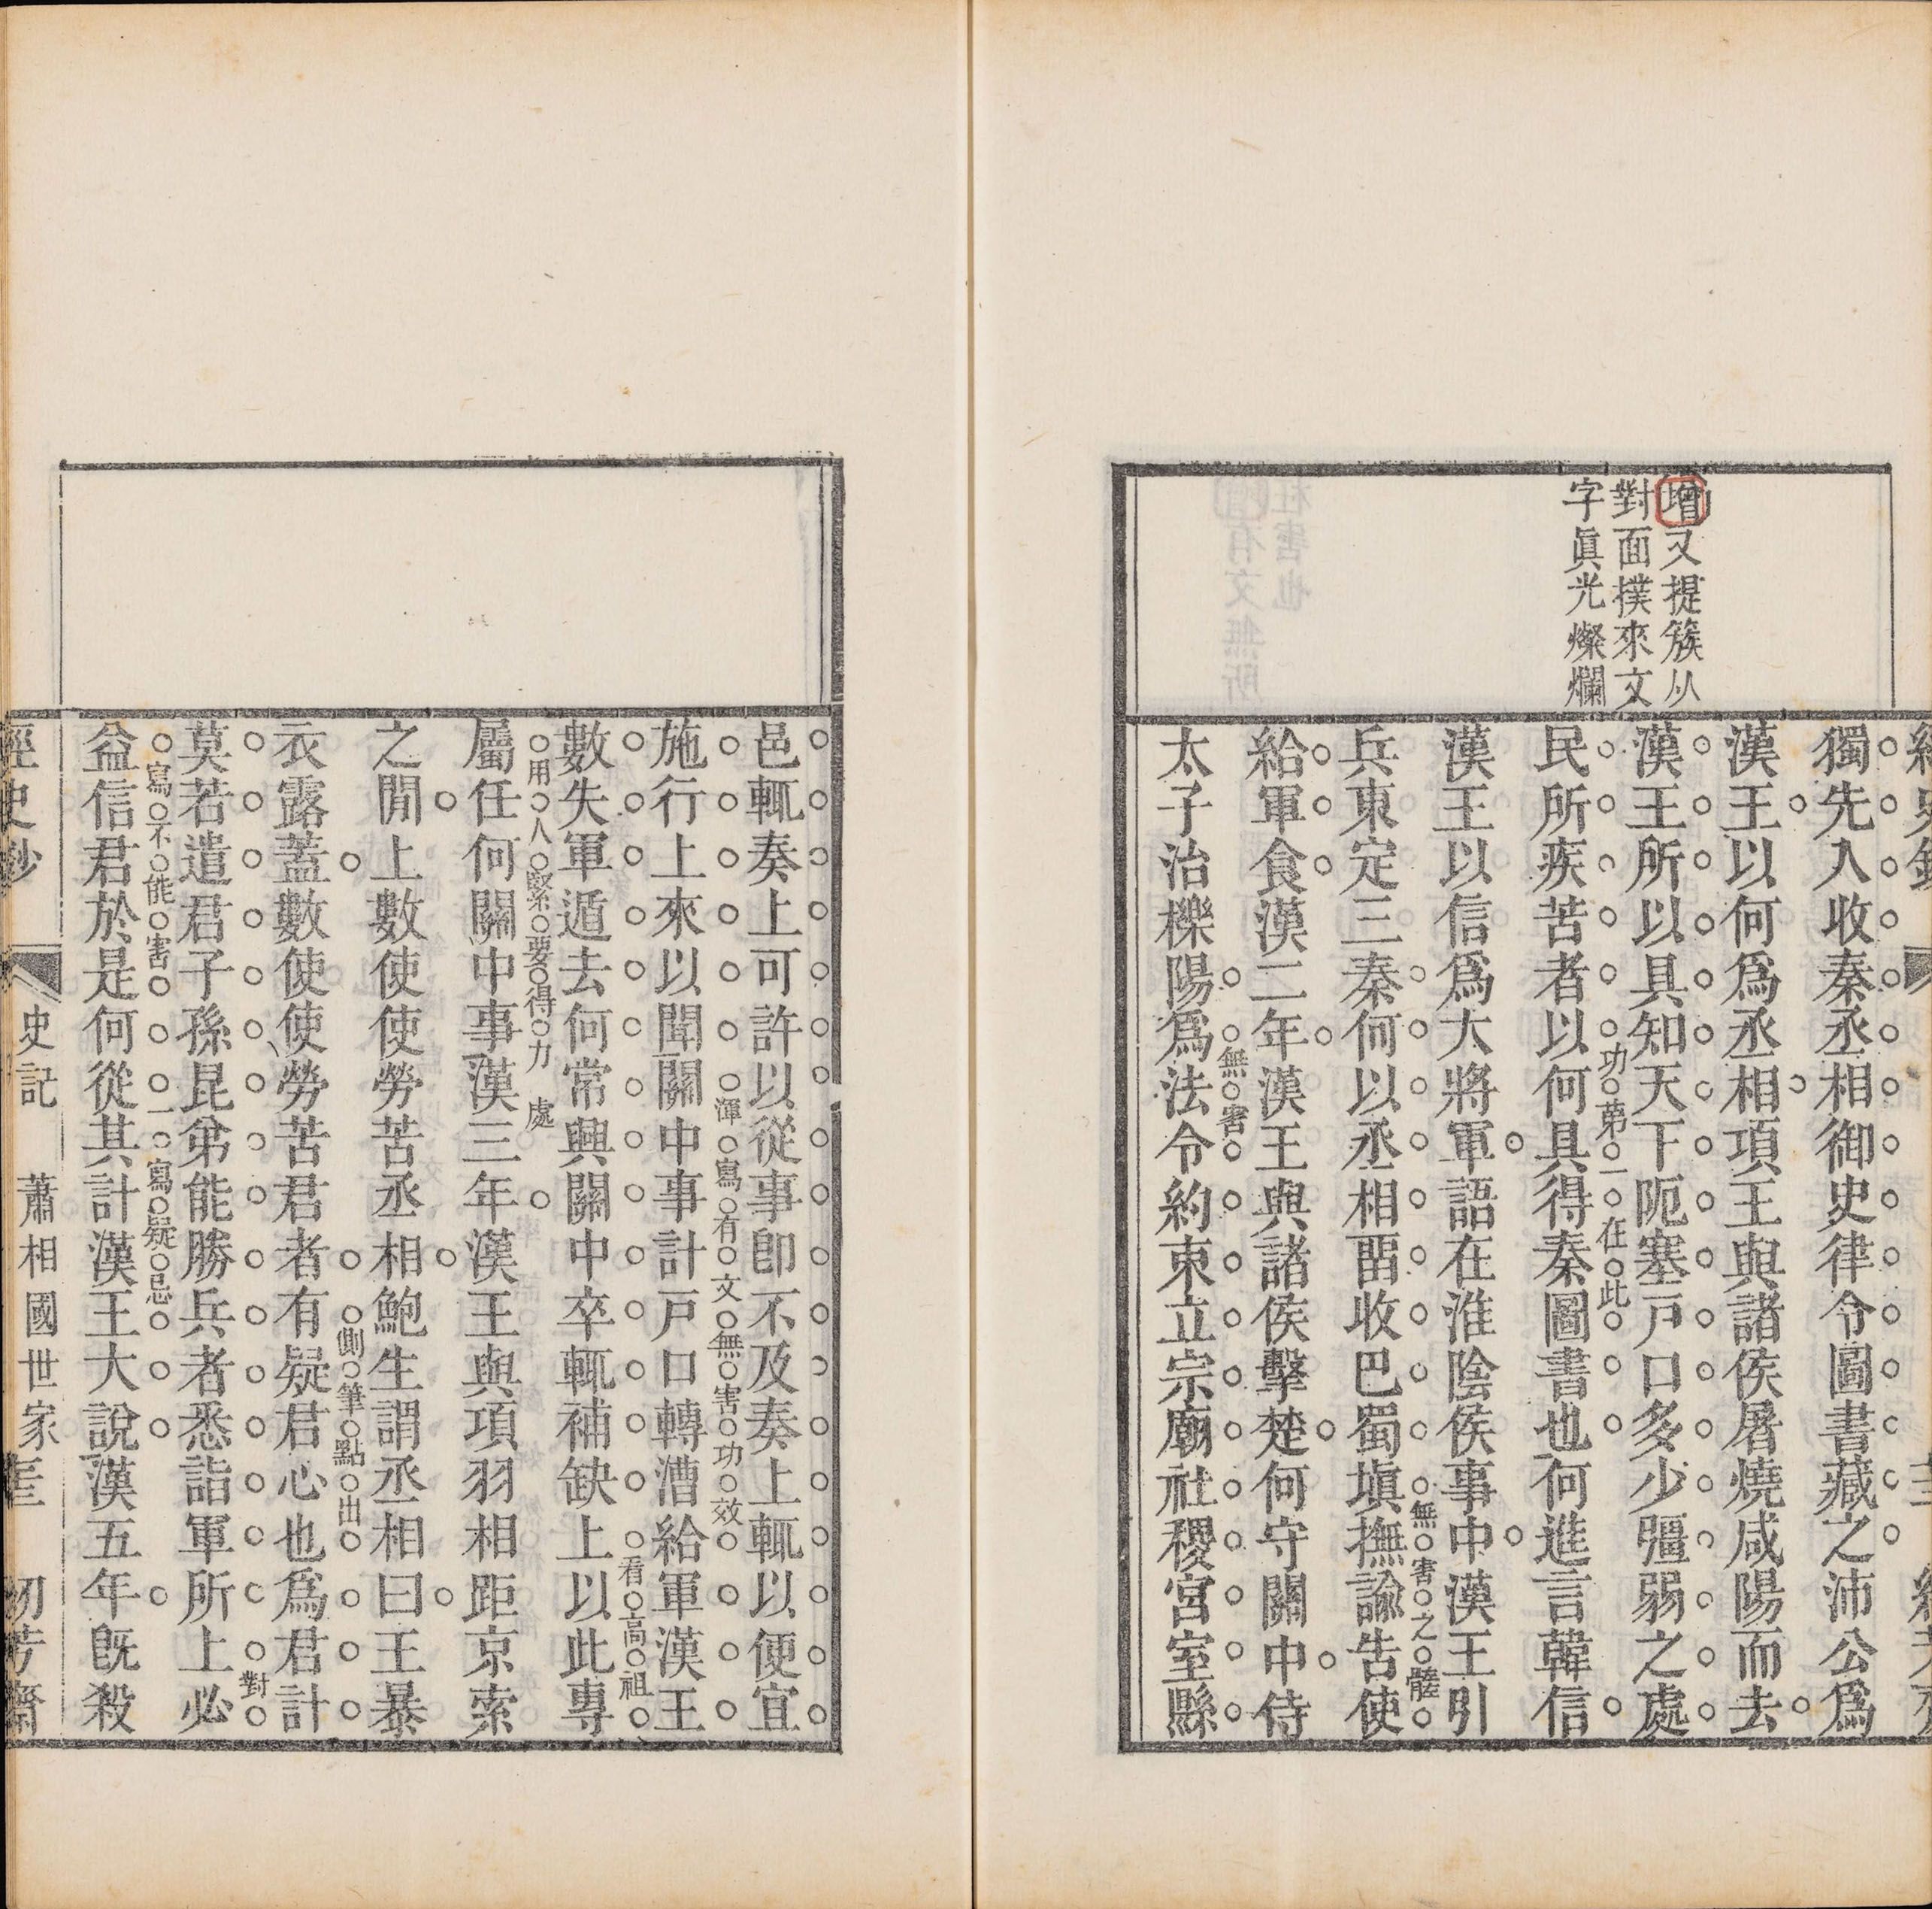 增又提簇以
對面撲來文
字眞光燦爛
獨先入收秦丞相御史律令圖書藏之沛公爲
漢王以何爲丞相項王與諸侯屠燒咸陽而去
漢王所以具知天下阨塞戸口多少彊弱之處
民所疾苦者以何具得秦圖書也何進言韓信
功苐一在此
漢王以信爲大將軍語在淮陰侯事中漢王引
兵東定三秦何以丞相畱收巴蜀塡撫諭告使
無害之髓
給軍食漢二年漢王與諸侯擊楚何守關中侍
太子治櫟陽爲法令約束立宗廟社稷宮室縣
無害
邑輒奏上可許以從事卽不及奏上輒以便宜
施行上來以聞關中事計戸口轉漕給軍漢王
渾寫有文無害功效
數失軍遁去何常興關中卒輒補缺上以此專
看高祖
屬任何關中事漢三年漢王與項羽相距京索
用人緊要得力處
之閒上數使使勞苦丞相鮑生謂丞相曰王暴
衣露蓋數使使勞苦君者有疑君心也爲君計
側筆點出
莫若遣君子孫昆弟能勝兵者悉詣軍所上必
對
益信君於是何從其計漢王大說漢五年旣殺
寫不能害一寫疑忌
經史鈔 史記 蕭相國世家 初芳齋